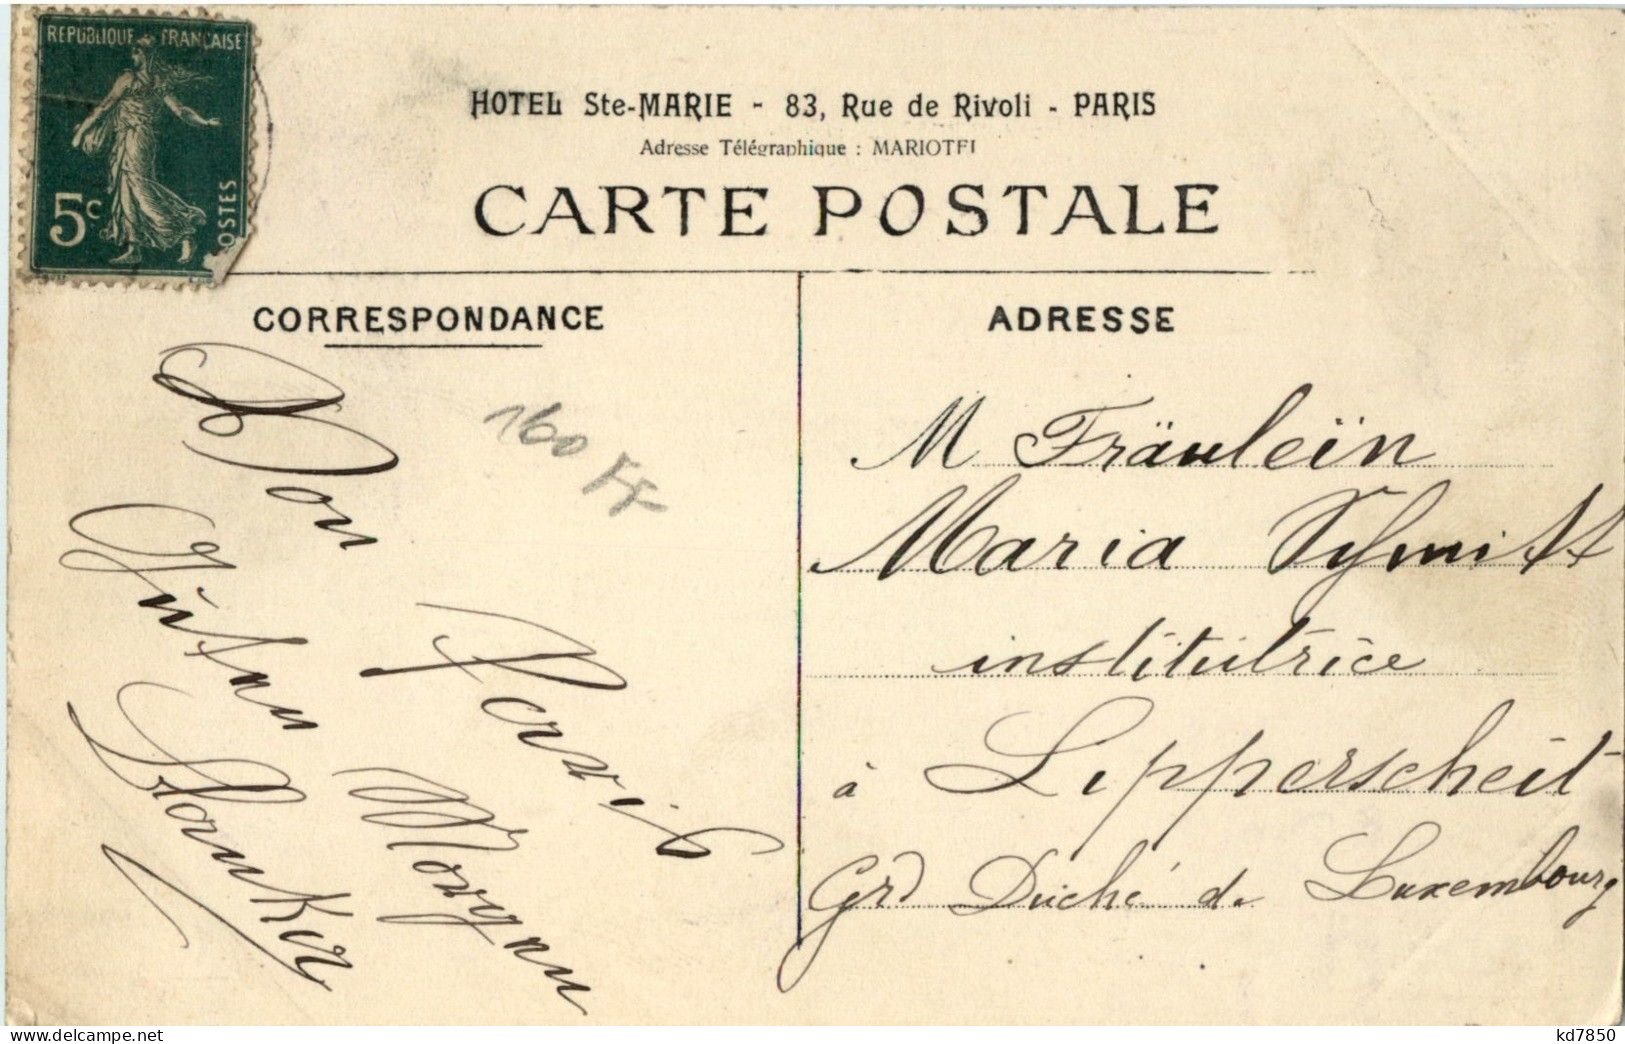 REPUBLIQUE FRANÇAISE
5c
POSTES
HOTEL Ste-MARIE - 83, Rue de Rivoli - PARIS
Adresse Télégraphique : MARIOTEL
CARTE POSTALE
CORRESPONDANCE
ADRESSE
160 Fr
Von Paris
Guten Morgen
M Fräulein
Maria Schmitt
institutrice
à Lipperscheid
Grd Duché de Luxembourg
www.delcampe.net
kd7850